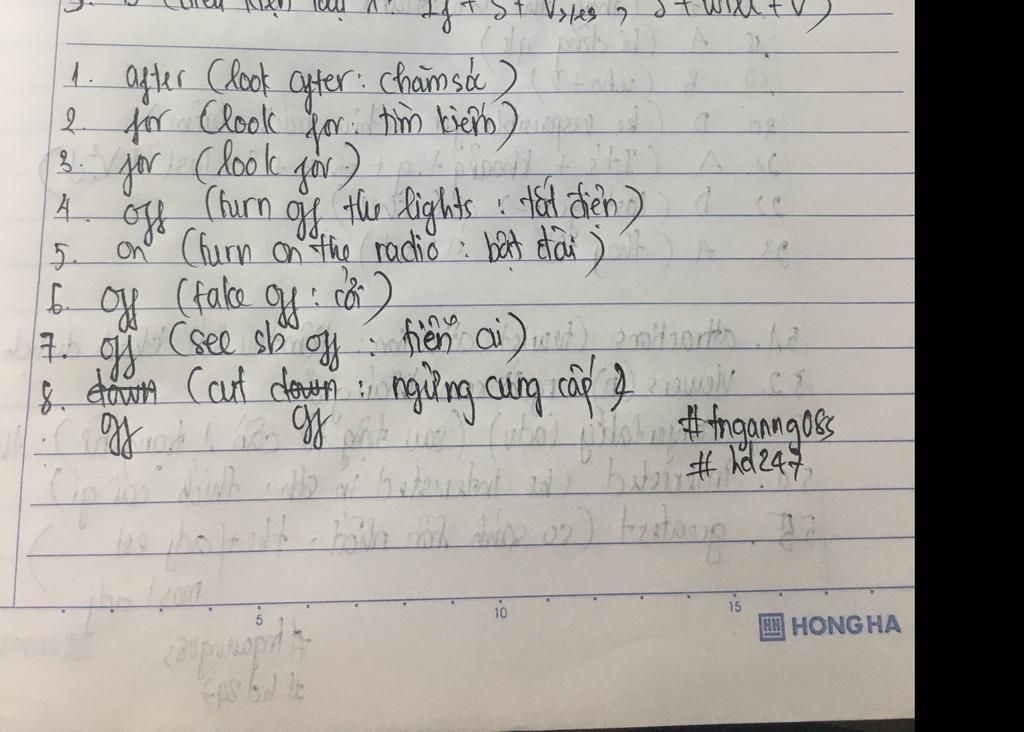 5. (điều kiện loại 1: If + S + Vs/es, S + will + V)
1. after (look after: chăm sóc)
2. for (look for: tìm kiếm)
3. for (look for)
4. off (turn off the lights: tắt điện)
5. on (turn on the radio: bật đài)
6. off (take off: cởi)
7. off (see sb off: tiễn ai)
8. down (cut down: ngừng cung cấp)
off off
#tnganng08s
# hd247
5 10 15
HONG HA